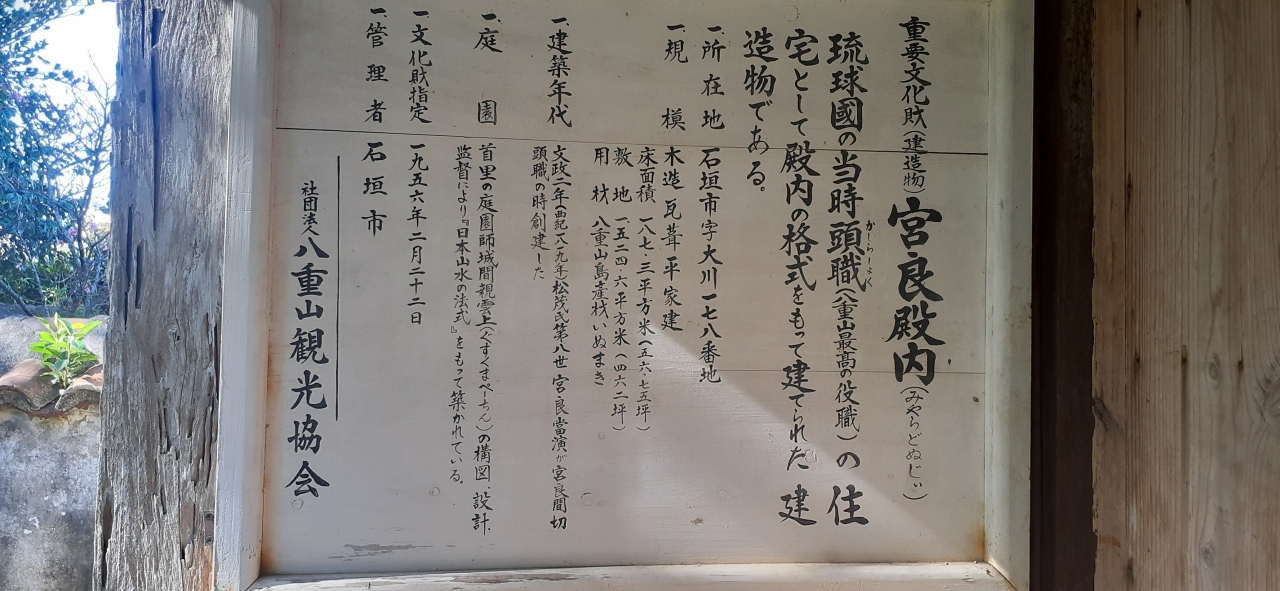 重要文化財(建造物)宮良殿内(みやらどぅぬじぃ)
琉球國の当時頭職(八重山最高の役職)の住
かしらしょく
宅として殿内の格式をもって建てられた建
造物である。
一、所在地 石垣市字大川一七八番地
一、規模 木造瓦葺平家建
床面積 一八七・三平方米(五六・七五坪)
敷地 一五二四・六平方米(四六二坪)
用材 八重山島産材いぬまき
一、建築年代 文政二年(西紀一八一九年)松茂氏第八世宮良當演が宮良間切
頭職の時創建した
一、庭園 首里の庭園師城間親雲上(ぐすくまぺーちん)の構図、設計、
監督により『日本山水の法式』をもって築かれている。
一、文化財指定 一九五六年二月二十二日
一、管理者 石垣市
社団法人八重山観光協会